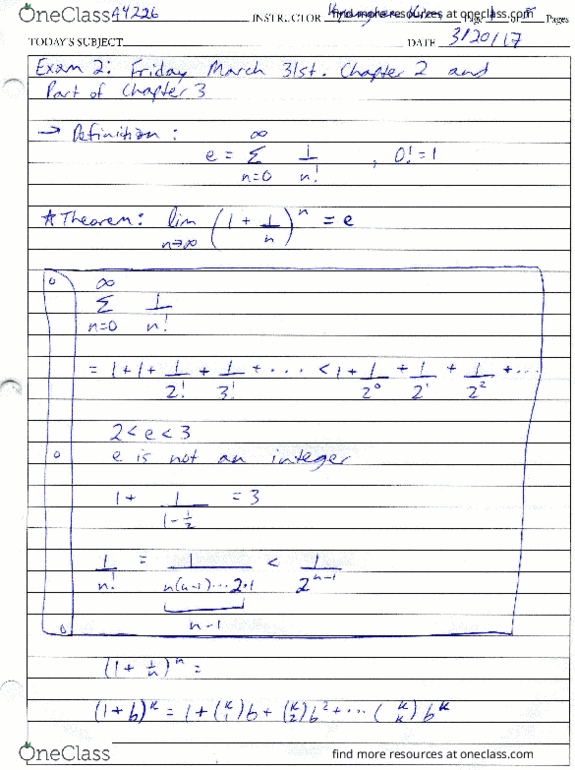 OneClass A4226 INSTRUCTOR find more resources at oneclass.com Pages
TODAY'S SUBJECT DATE 3/20/17
Exam 2: Friday March 31st. Chapter 2 and
Part of Chapter 3
→ Definition:
e = ∞ Σ n=0 1/n! , 0! = 1
* Theorem: lim n→∞ (1 + 1/n)^n = e
∞ Σ n=0 1/n!
= 1 + 1 + 1/2! + 1/3! + ... < 1 + 1/2^0 + 1/2^1 + 1/2^2 + ...
2 < e < 3
e is not an integer
1 + 1/(1 - 1/2) = 3
1/n! = 1/(n(n-1)...2·1) < 1/2^(n-1)
n-1
(1 + 1/n)^n =
(1+b)^k = 1 + (k 1)b + (k 2)b^2 + ... (k k) b^k
OneClass find more resources at oneclass.com